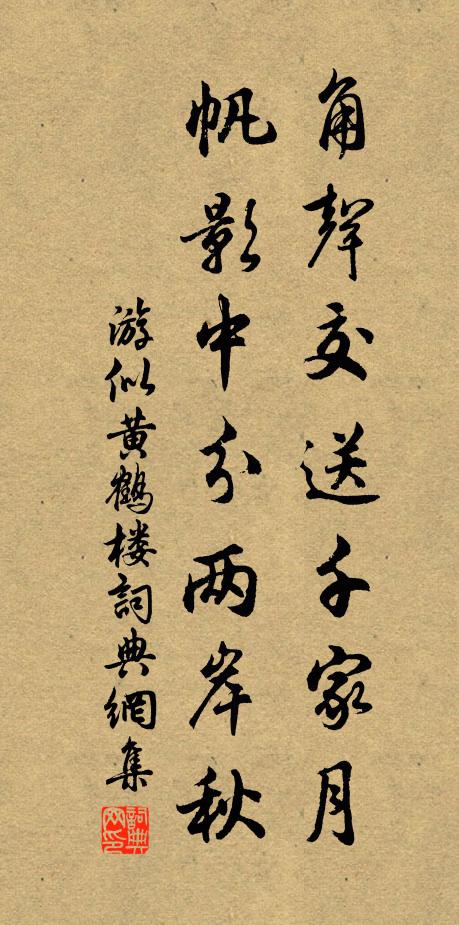 角聲交送千家月
帆影中分兩岸秋
游似黄鶴楼詞典網集
詞典网印